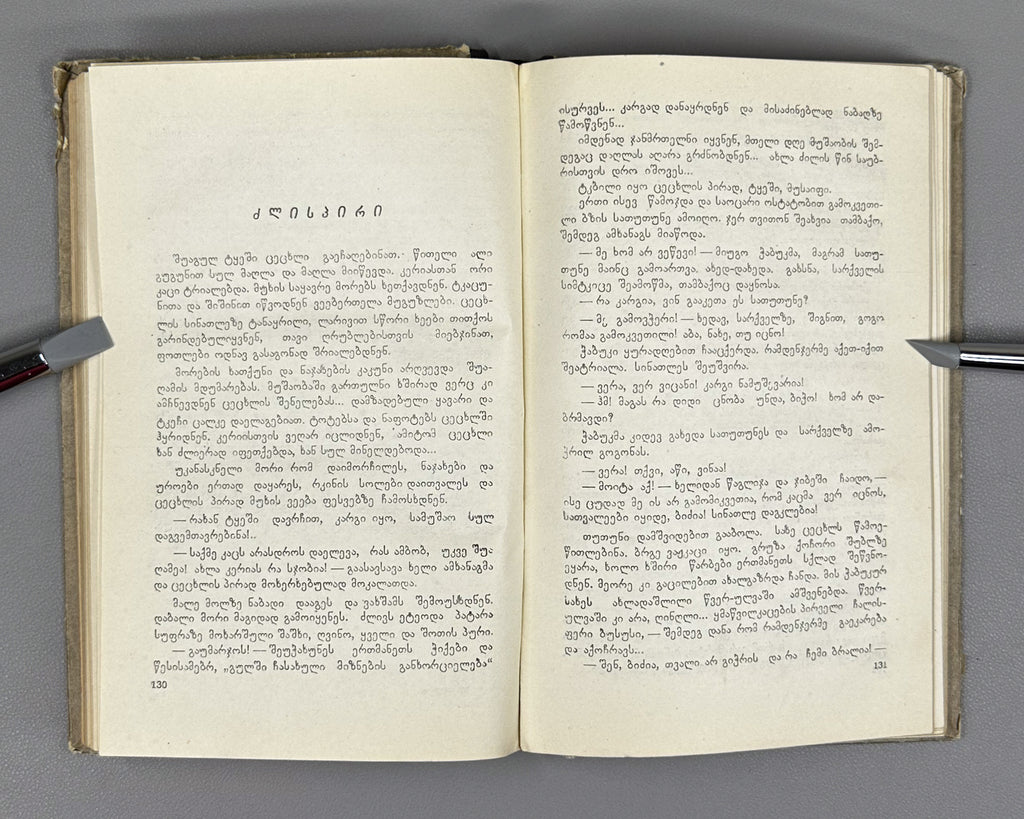 ძლისპირი
შუაგულ ტყეში ცეცხლი გაეჩაღებინათ. წითელი ალი
გუგუნით სულ მაღლა და მაღლა მიიწევდა. კერიასთან ორი
კაცი ტრიალებდა. მუხის საყავრე მორებს ხეთქავდნენ. ტკაცუ-
ნითა და შიშინით იწვოდნენ ვეებერთელა მუგუზლები. ცეცხ-
ლის სინათლეზე ტანაყრილი, ლარივით სწორი ხეები თითქოს
გარინდებულიყვნენ, თავი ღრუბლებისთვის მიებჯინათ,
ფოთლები ოდნავ გასაგონად შრიალებდნენ.
მორების ხათქუნი და ნაჯახების კაკუნი არღვევდა შუა-
ღამის მდუმარებას. მუშაობაში გართულნი ხშირად ვერც კი
ამჩნევდნენ ცეცხლის შენელებას... დამზადებული ყავარი და
ტკეჩი ცალკე დაელაგებიათ. ტოტებსა და ნაფოტებს ცეცხლში
ჰყრიდნენ. კერიისთვის ვეღარ იცლიდნენ, ამიტომ ცეცხლი
ხან ძლიერად იფეთქებდა, ხან სულ მინელდებოდა...
უკანასკნელი მორი რომ დაიმორჩილეს, ნაჯახები და
უროები ერთად დაყარეს, რკინის სოლები დაითვალეს და
ცეცხლის პირად მუხის ვეება ფესვებზე ჩამოსხდნენ.
— რახან ტყეში დავრჩით, კარგი იყო, სამუშაო სულ
დაგვემთავრებინა!..
— საქმე კაცს არასდროს დაელევა, რას ამბობ, უკვე შუა
ღამეა! ახლა კერიას რა სჯობია! — გაასავსავა ხელი ამხანაგმა
და ცეცხლის პირად მოხერხებულად მოკალათდა.
მალე მოლზე ნაბადი დააგეს და ვახშამს შემოუსხდნენ.
დაბალი მორი მაგიდად გამოიყენეს. ძლივს ეტეოდა პატარა
სუფრაზე მოხარშული შაშხი, ღვინო, ყველი და შოთის პური.
— გაუმარჯოს! — შეუჰახუნეს ერთმანეთს ჭიქები და
წესისამებრ, „გულში ჩასახული მიზნების განხორციელება“
130
ისურვეს... კარგად დანაყრდნენ და მისაძინებლად ნაბადზე
წამოწვნენ...
იმდენად ჯანმრთელნი იყვნენ, მთელი დღე მუშაობის შემ-
დეგაც დაღლას აღარა გრძნობდნენ... ახლა ძილის წინ საუბ-
რისთვის დრო იშოვეს...
ტკბილი იყო ცეცხლის პირად, ტყეში, მუსაიფი.
ერთი ისევ წამოჯდა და საოცარი ოსტატობით გამოკვეთი-
ლი ბზის სათუთუნე ამოიღო. ჯერ თვითონ შეახვია თამბაქო,
შემდეგ ამხანაგს მიაწოდა.
— მე ხომ არ ვეწევი! — მიუგო ჭაბუკმა, მაგრამ სათუ-
თუნე მაინც გამოართვა. ახედ-დახედა. გახსნა, სარქველის
სიმტკიცე შეამოწმა, თამბაქოც დაყნოსა.
— რა კარგია, ვინ გააკეთა ეს სათუთუნე?
— მე გამოვჭერი! — ხედავ, სარქველზე, შიგნით, გოგო
რომაა გამოკვეთილი! აბა, ნახე, თუ იცნო!
ჭაბუკი ყურადღებით ჩააცქერდა. რამდენჯერმე აქეთ-იქით
შეატრიალა. სინათლეს შეუშვირა.
— ვერა, ვერ ვიცანი! კარგი ნამუშევარია!
— ჰმ! მაგას რა დიდი ცნობა უნდა, ბიჭო! ხომ არ და-
ბრმავდი?
ჭაბუკმა კიდევ გახედა სათუთუნეს და სარქველზე ამო-
ჭრილ გოგონას.
— ვერა! თქვი, აწი, ვინაა!
— მოიტა აქ! — ხელიდან წაგლიჯა და ჯიბეში ჩაიდო, —
ისე ცუდად მე ის არ გამომიკვეთია, რომ კაცმა ვერ იცნოს,
სათვალეები იყიდე, ბიძია! სინათლე დაგკლებია!
თუთუნი დამშვიდებით გააბოლა. სახე ცეცხლს წამოე-
წითლებინა. ბრგე ვაჟკაცი იყო. გრუზა ქოჩორი შუბლზე
ეყარა, ხოლო ხშირი წარბები ერთმანეთს სქლად შეწვნო-
დნენ. მეორე კი გაცილებით ახალგაზრდა ჩანდა. მის ჭაბუკურ
სახეს ახლადაშლილი წვერ-ულვაში ამშვენებდა. წვერ-
ულვაში კი არა, ღინღლი... ყმაწვილკაცების პირველი ჩალის-
ფერი ბუსუსი, — შემდეგ დანა რომ რამდენჯერმე გაეკარება
და აქოჩრავს...
— შენ, ბიძია, თვალი არ გიჭრის და რა ჩემი ბრალია! —
131